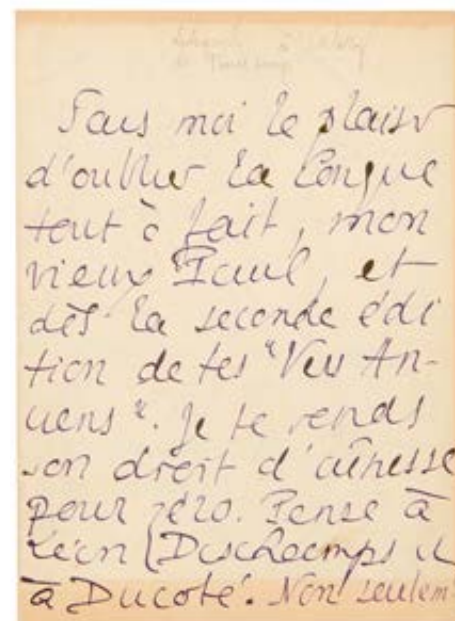 Fais moi le plaisir
d'oublier La Conque
tout à fait, mon
vieux Paul, et
dès la seconde édi
tion de tes "Vers An-
ciens". Je te rends
son droit d'aînesse
pour zéro. Pense à
Léon (Deschamps et
à Ducoté. Non seulem